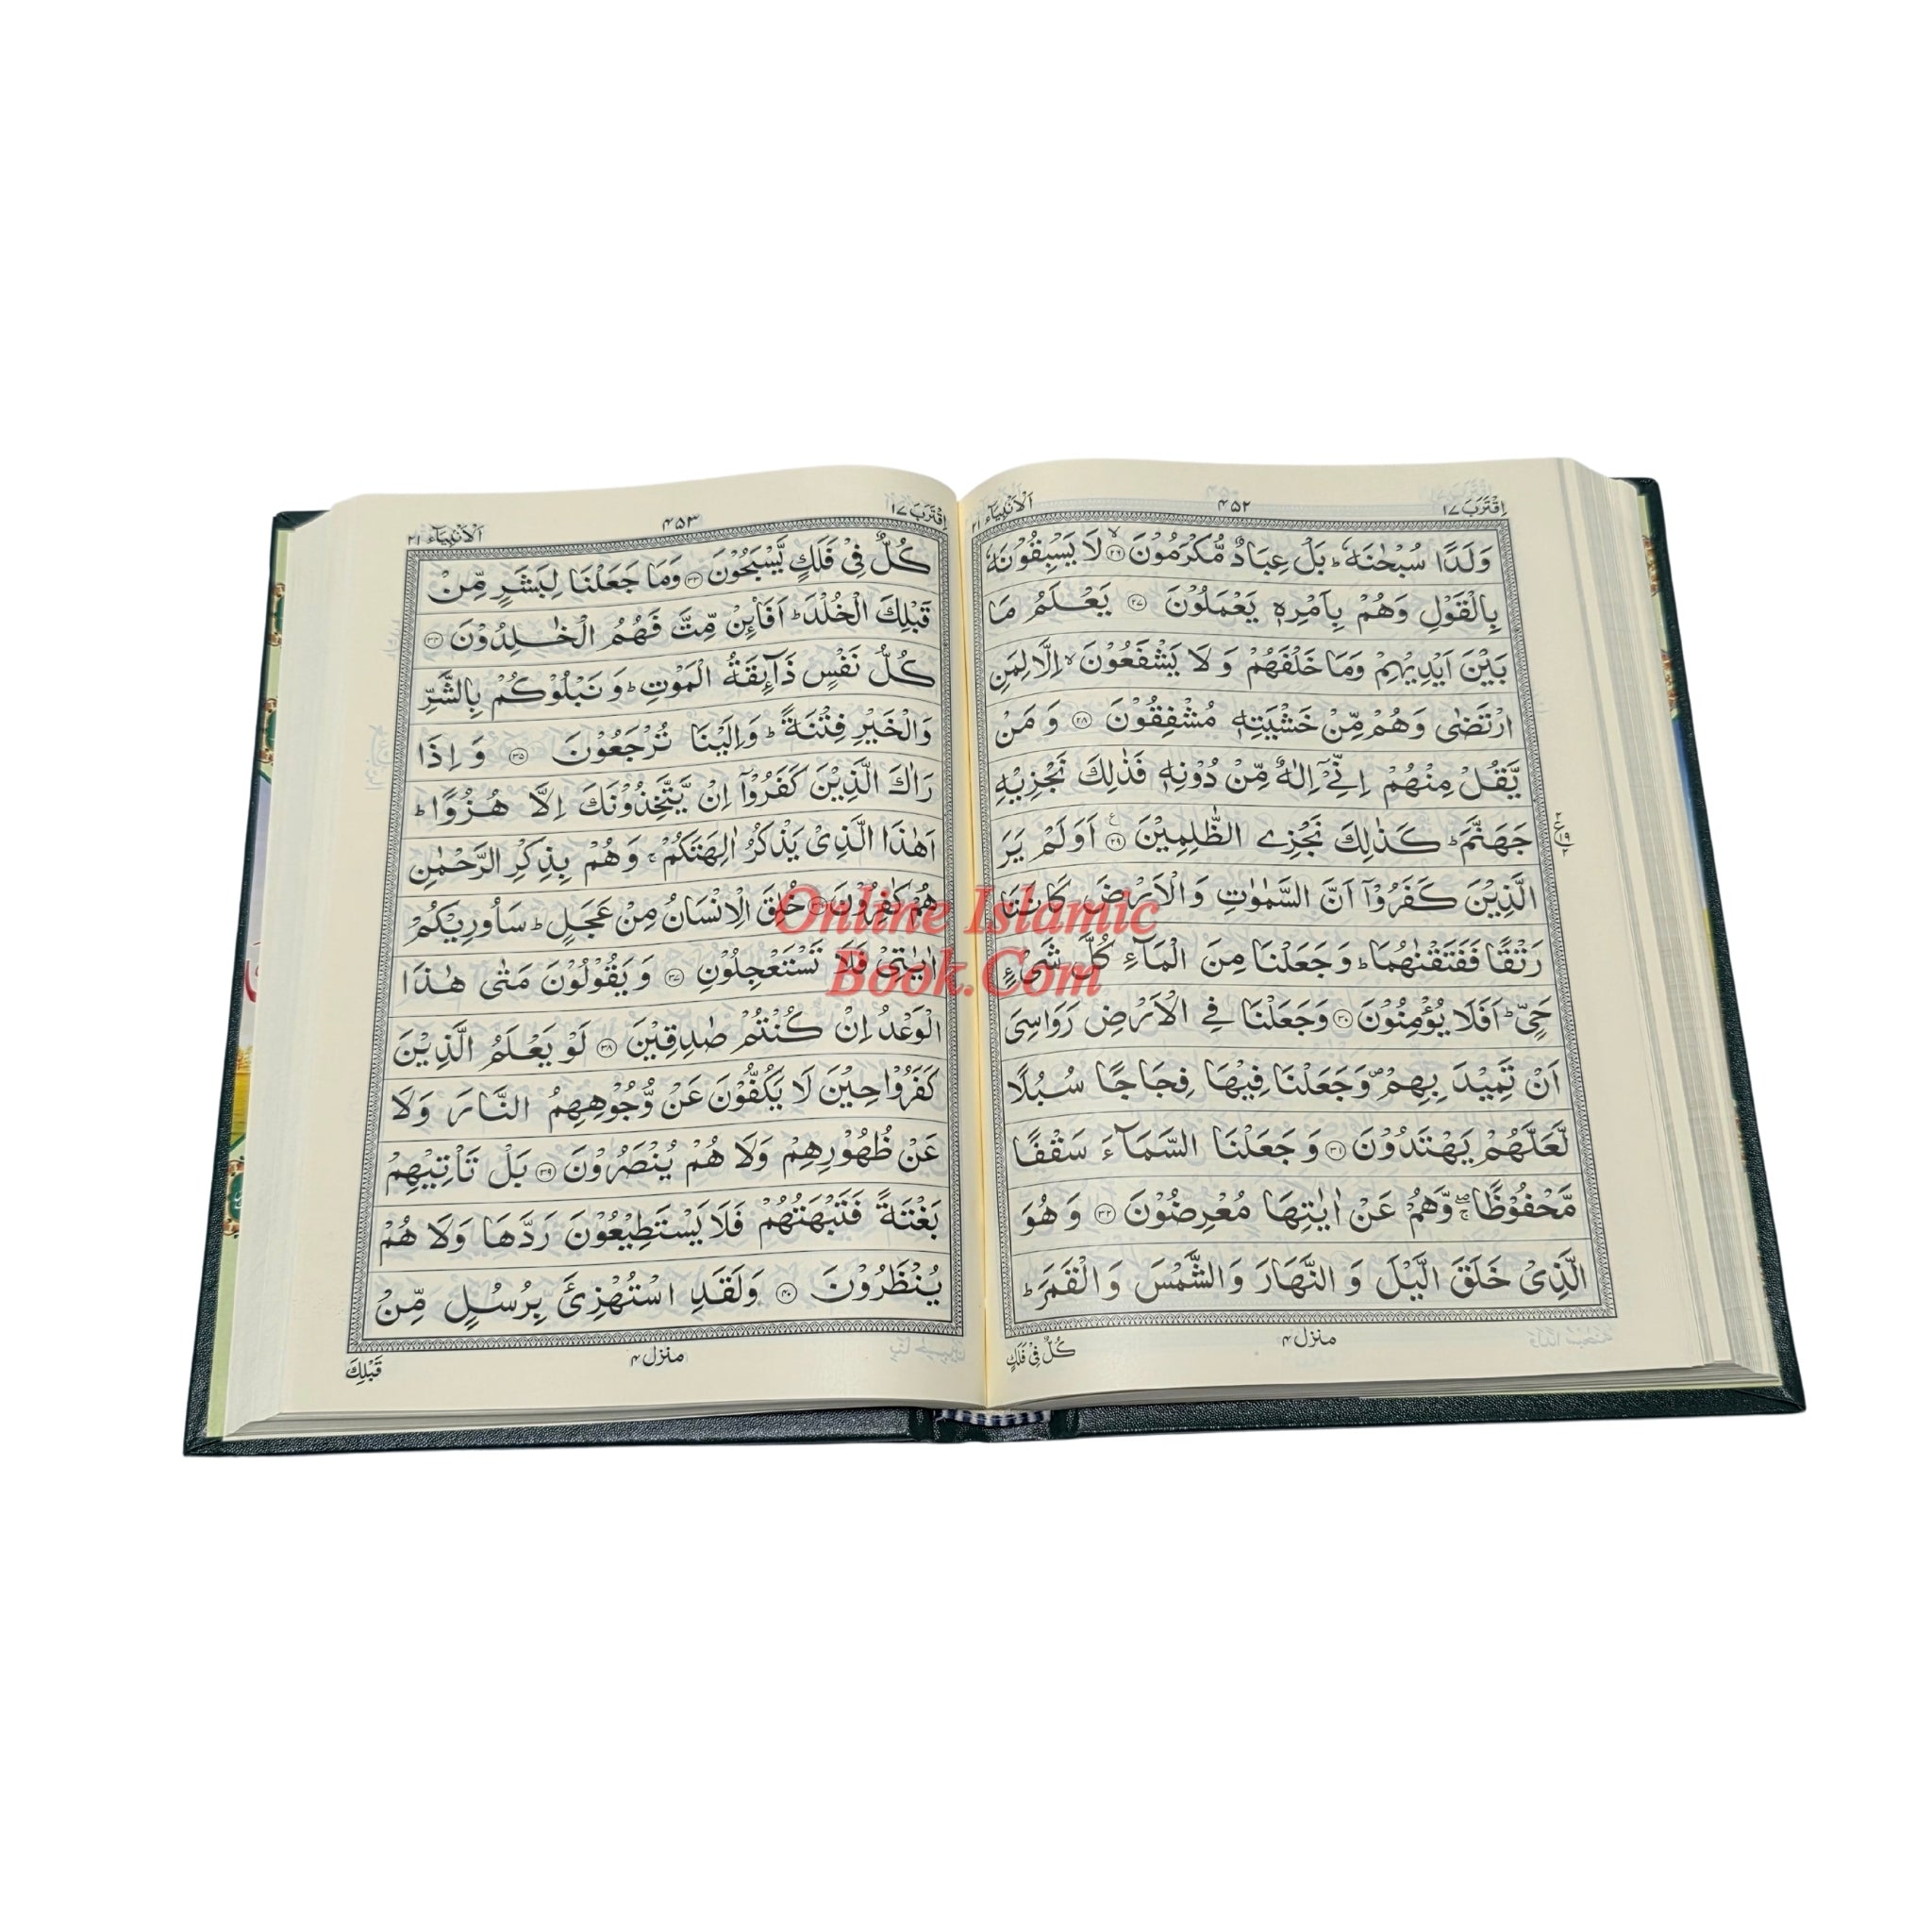 اِقْتَرَبَ ١٧
۴۵۲
اَلْاَنْۢبِيَآء ٢١
وَلَدًا سُبْحٰنَهٗ ؕ بَلْ عِبَادٌ مُّكْرَمُوْنَ ﴿۲۶﴾ لَا يَسْبِقُوْنَهٗ
بِالْقَوْلِ وَهُمْ بِاَمْرِهٖ يَعْمَلُوْنَ ﴿۲۷﴾ يَعْلَمُ مَا
بَيْنَ اَيْدِيْهِمْ وَمَا خَلْفَهُمْ وَ لَا يَشْفَعُوْنَ ۙ اِلَّا لِمَنِ
ارْتَضٰى وَهُمْ مِّنْ خَشْيَتِهٖ مُشْفِقُوْنَ ﴿۲۸﴾ وَ مَنْ
يَّقُلْ مِنْهُمْ اِنِّيْۤ اِلٰهٌ مِّنْ دُوْنِهٖ فَذٰلِكَ نَجْزِيْهِ
جَهَنَّمَ ؕ كَذٰلِكَ نَجْزِي الظّٰلِمِيْنَ ﴿۲۹﴾ اَوَلَمْ يَرَ
الَّذِيْنَ كَفَرُوْۤا اَنَّ السَّمٰوٰتِ وَ الْاَرْضَ كَانَتَا
رَتْقًا فَفَتَقْنٰهُمَا ؕ وَ جَعَلْنَا مِنَ الْمَآءِ كُلَّ شَيْءٍ
حَيٍّ ؕ اَفَلَا يُؤْمِنُوْنَ ﴿۳۰﴾ وَجَعَلْنَا فِي الْاَرْضِ رَوَاسِيَ
اَنْ تَمِيْدَ بِهِمْ ۪ وَجَعَلْنَا فِيْهَا فِجَاجًا سُبُلًا
لَّعَلَّهُمْ يَهْتَدُوْنَ ﴿۳۱﴾ وَ جَعَلْنَا السَّمَآءَ سَقْفًا
مَّحْفُوْظًا ۖۚ وَّهُمْ عَنْ اٰيٰتِهَا مُعْرِضُوْنَ ﴿۳۲﴾ وَ هُوَ
الَّذِيْ خَلَقَ الَّيْلَ وَ النَّهَارَ وَ الشَّمْسَ وَ الْقَمَرَ ؕ
منزل ۴
كُلٌّ فِيْ فَلَكٍ
اِقْتَرَبَ ١٧
۴۵۳
اَلْاَنْۢبِيَآء ٢١
كُلٌّ فِيْ فَلَكٍ يَّسْبَحُوْنَ ﴿۳۳﴾ وَمَا جَعَلْنَا لِبَشَرٍ مِّنْ
قَبْلِكَ الْخُلْدَ ؕ اَفَا۠ئِنْ مِّتَّ فَهُمُ الْخٰلِدُوْنَ ﴿۳۴﴾
كُلُّ نَفْسٍ ذَآئِقَةُ الْمَوْتِ ؕ وَ نَبْلُوْكُمْ بِالشَّرِّ
وَالْخَيْرِ فِتْنَةً ؕ وَاِلَيْنَا تُرْجَعُوْنَ ﴿۳۵﴾ وَ اِذَا
رَاٰكَ الَّذِيْنَ كَفَرُوْۤا اِنْ يَّتَّخِذُوْنَكَ اِلَّا هُزُوًا ؕ
اَهٰذَا الَّذِيْ يَذْكُرُ اٰلِهَتَكُمْ ۚ وَ هُمْ بِذِكْرِ الرَّحْمٰنِ
هُمْ كٰفِرُوْنَ ﴿۳۶﴾ خُلِقَ الْاِنْسَانُ مِنْ عَجَلٍ ؕ سَاُورِيْكُمْ
اٰيٰتِيْ فَلَا تَسْتَعْجِلُوْنِ ﴿۳۷﴾ وَ يَقُوْلُوْنَ مَتٰى هٰذَا
الْوَعْدُ اِنْ كُنْتُمْ صٰدِقِيْنَ ﴿۳۸﴾ لَوْ يَعْلَمُ الَّذِيْنَ
كَفَرُوْا حِيْنَ لَا يَكُفُّوْنَ عَنْ وُّجُوْهِهِمُ النَّارَ وَلَا
عَنْ ظُهُوْرِهِمْ وَلَا هُمْ يُنْصَرُوْنَ ﴿۳۹﴾ بَلْ تَاْتِيْهِمْ
بَغْتَةً فَتَبْهَتُهُمْ فَلَا يَسْتَطِيْعُوْنَ رَدَّهَا وَلَا هُمْ
يُنْظَرُوْنَ ﴿۴۰﴾ وَلَقَدِ اسْتُهْزِئَ بِرُسُلٍ مِّنْ
منزل ۴
قَبْلِكَ
Online Islamic
Book.Com